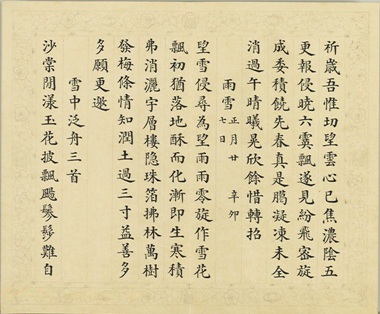 祈歲吾惟切望雲心已焦濃陰五
更報侵曉六霙飄遂見紛飛密旋
成委積饒先春真是臈凝凍未全
消過午晴曦晃欣餘惜轉招
雨雪 正月廿七日 辛卯
望雪侵尋為望雨雨零旋作雪花
飄初猶落地酥而化漸即生寒積
弗消灑宇層樓隱珠箔拂林萬樹
發梅條情知潤土過三寸益善多
多願更邀
雪中泛舟三首
沙棠閒漾玉花披飄颺鬖髿難自